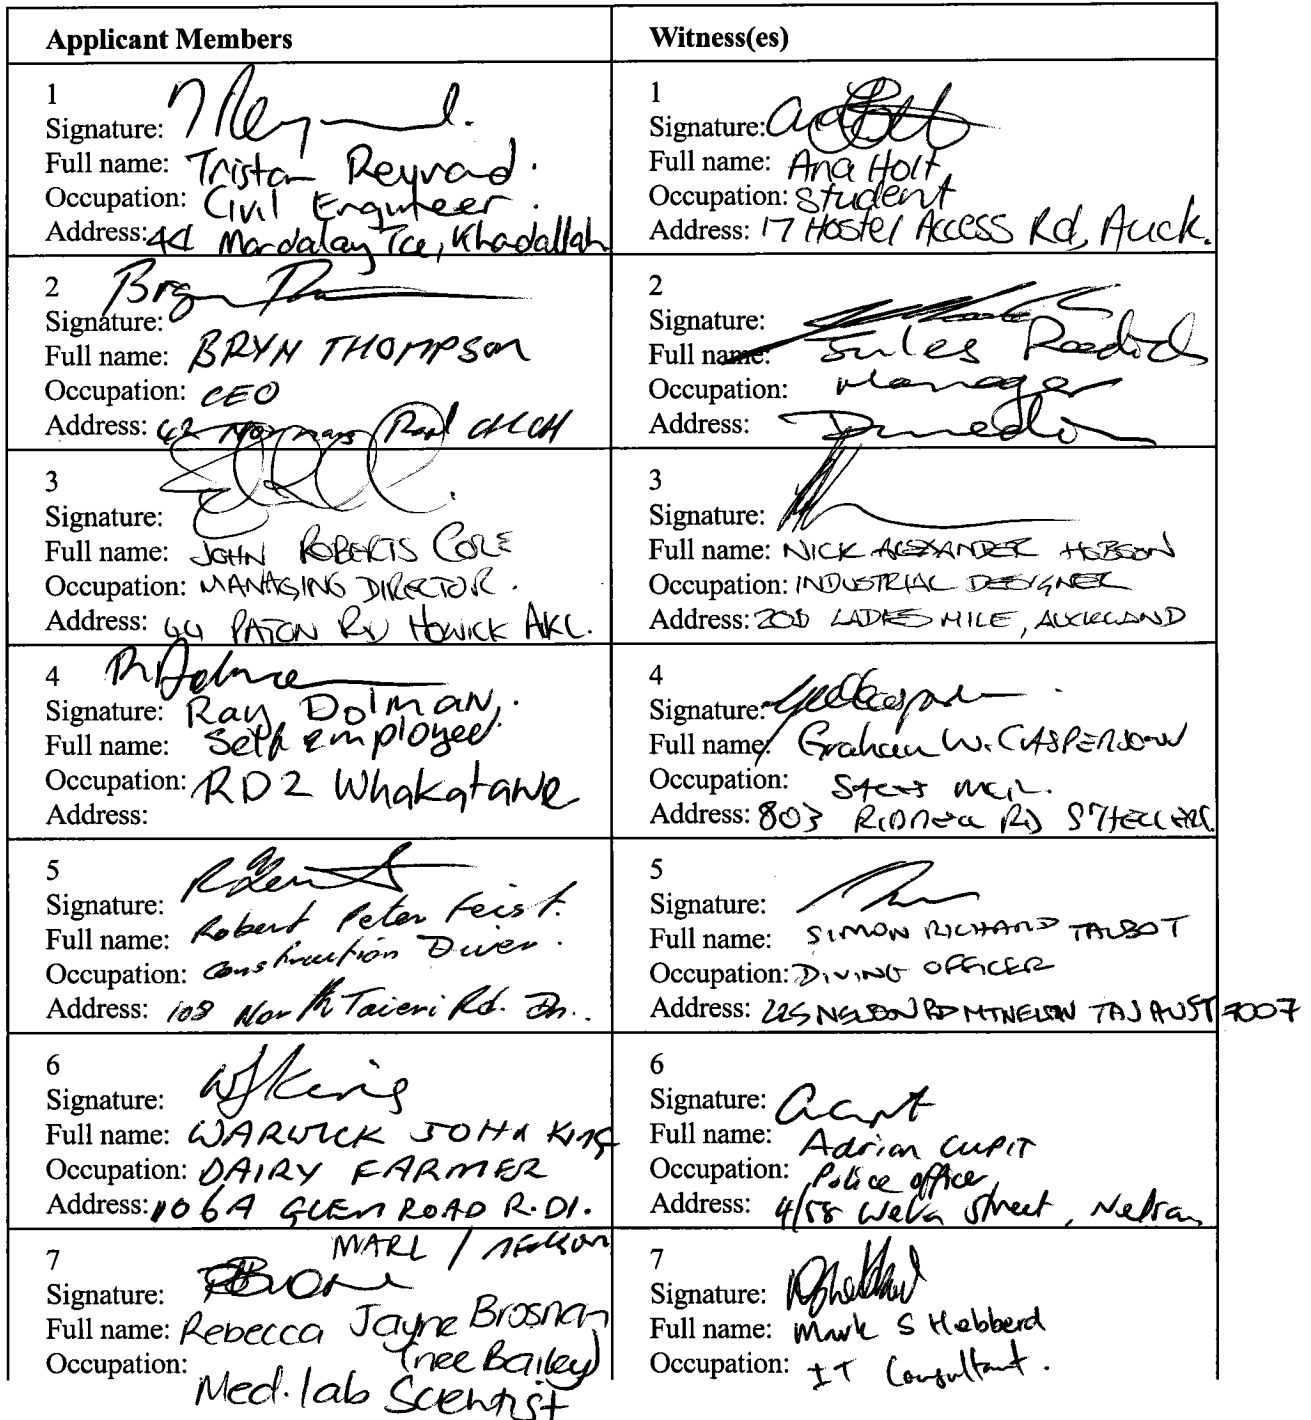 Applicant Members
Witness(es)
1
Signature:
Full name: Tristan Reynard.
Occupation: Civil Engineer.
Address: 44 Mandalay Tce, Khadallah
1
Signature:
Full name: Ana Holt
Occupation: Student
Address: 17 Hostel Access Rd, Auck.
2
Signature:
Full name: BRYN THOMPSON
Occupation: CEO
Address: 42 Road CHCH
2
Signature:
Full name: Jules
Occupation: Manager
Address: Dunedin
3
Signature:
Full name: JOHN ROBERTS COLE
Occupation: MANAGING DIRECTOR.
Address: 44 PATON RD HOWICK AKL.
3
Signature:
Full name: NICK ALEXANDER HOBSON
Occupation: INDUSTRIAL DESIGNER
Address: LADIES MILE, AUCKLAND
4
Signature: Ray Dolman.
Full name: Self employed.
Occupation: RD2 Whakatane
Address:
4
Signature:
Full name: Graham W. CASPERSON
Occupation:
Address: 803 RIDDELL RD
5
Signature:
Full name: Robert Peter Feist.
Occupation: Construction Diver.
Address: 108 North Taieri Rd. Dn..
5
Signature:
Full name: SIMON RICHARD TALBOT
Occupation: DIVING OFFICER
Address: 225 NELSON RD MT NELSON TAS AUST 7007
6
Signature: WJ King
Full name: WARWICK JOHN KING
Occupation: DAIRY FARMER
Address: 106A GLEN ROAD R.D1.
MARL / NELSON
6
Signature:
Full name: Adrian CUPIT
Occupation: Police officer
Address: 4/58 Weka Street, Nelson
7
Signature:
Full name: Rebecca Jayne Brosnan
(nee Bailey)
Occupation: Med. lab Scientist
7
Signature:
Full name: Mark S Hebberd
Occupation: IT Consultant.